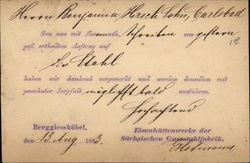 Herrn Benjamin Hirsch Sohn, Carlsbad
Den uns mit Ihrem werth. Schreiben von gestern
gefl. ertheilten Auftrag auf
Stahl
haben wir dankend vorgemerkt und werden denselben mit
gewohnter Sorgfalt möglichst bald ausführen.
Hochachtend
Berggiesshübel, Eisenhüttenwerke der
den 15. Aug. 1883. Sächsischen Gussstahlfabrik.
Hofmann